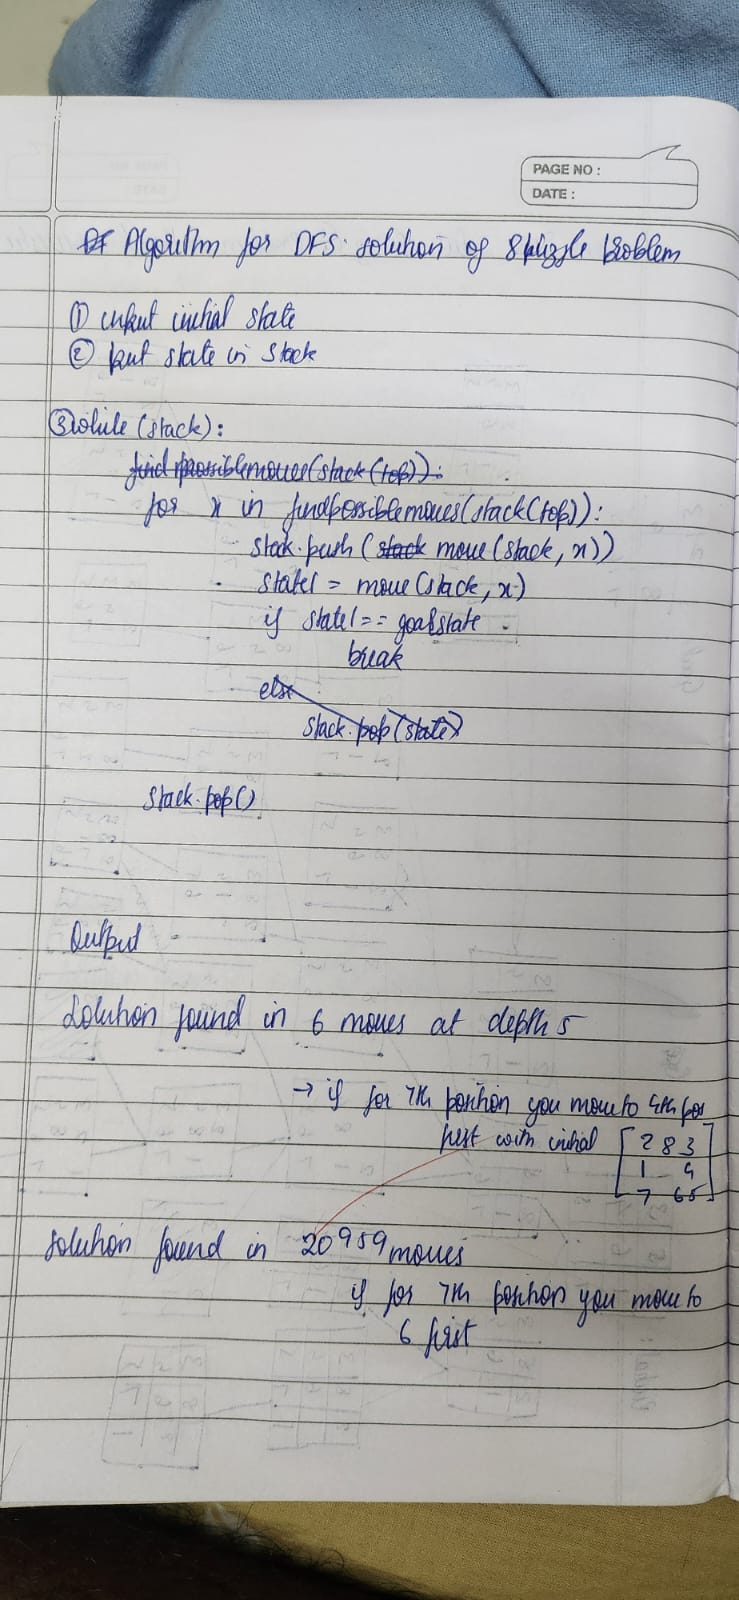 PAGE NO :
DATE :
Algorithm for DFS solution of 8 puzzle Problem
① input initial state
② put state in stack
③ while (stack):
find possiblemoves(stack(top)):
for x in findpossiblemoves(stack(top)):
stack.push (stack move (stack, x))
state1 = move (stack, x)
if state1 == goalstate
break
else
stack.pop(state)
stack.pop()
Output
Solution found in 6 moves at depth 5
→ if for 7th position you move to 4th pos
first with initial [ 2 8 3
1 4
7 6 5 ]
solution found in 20959 moves
if for 7th position you move to
6 first